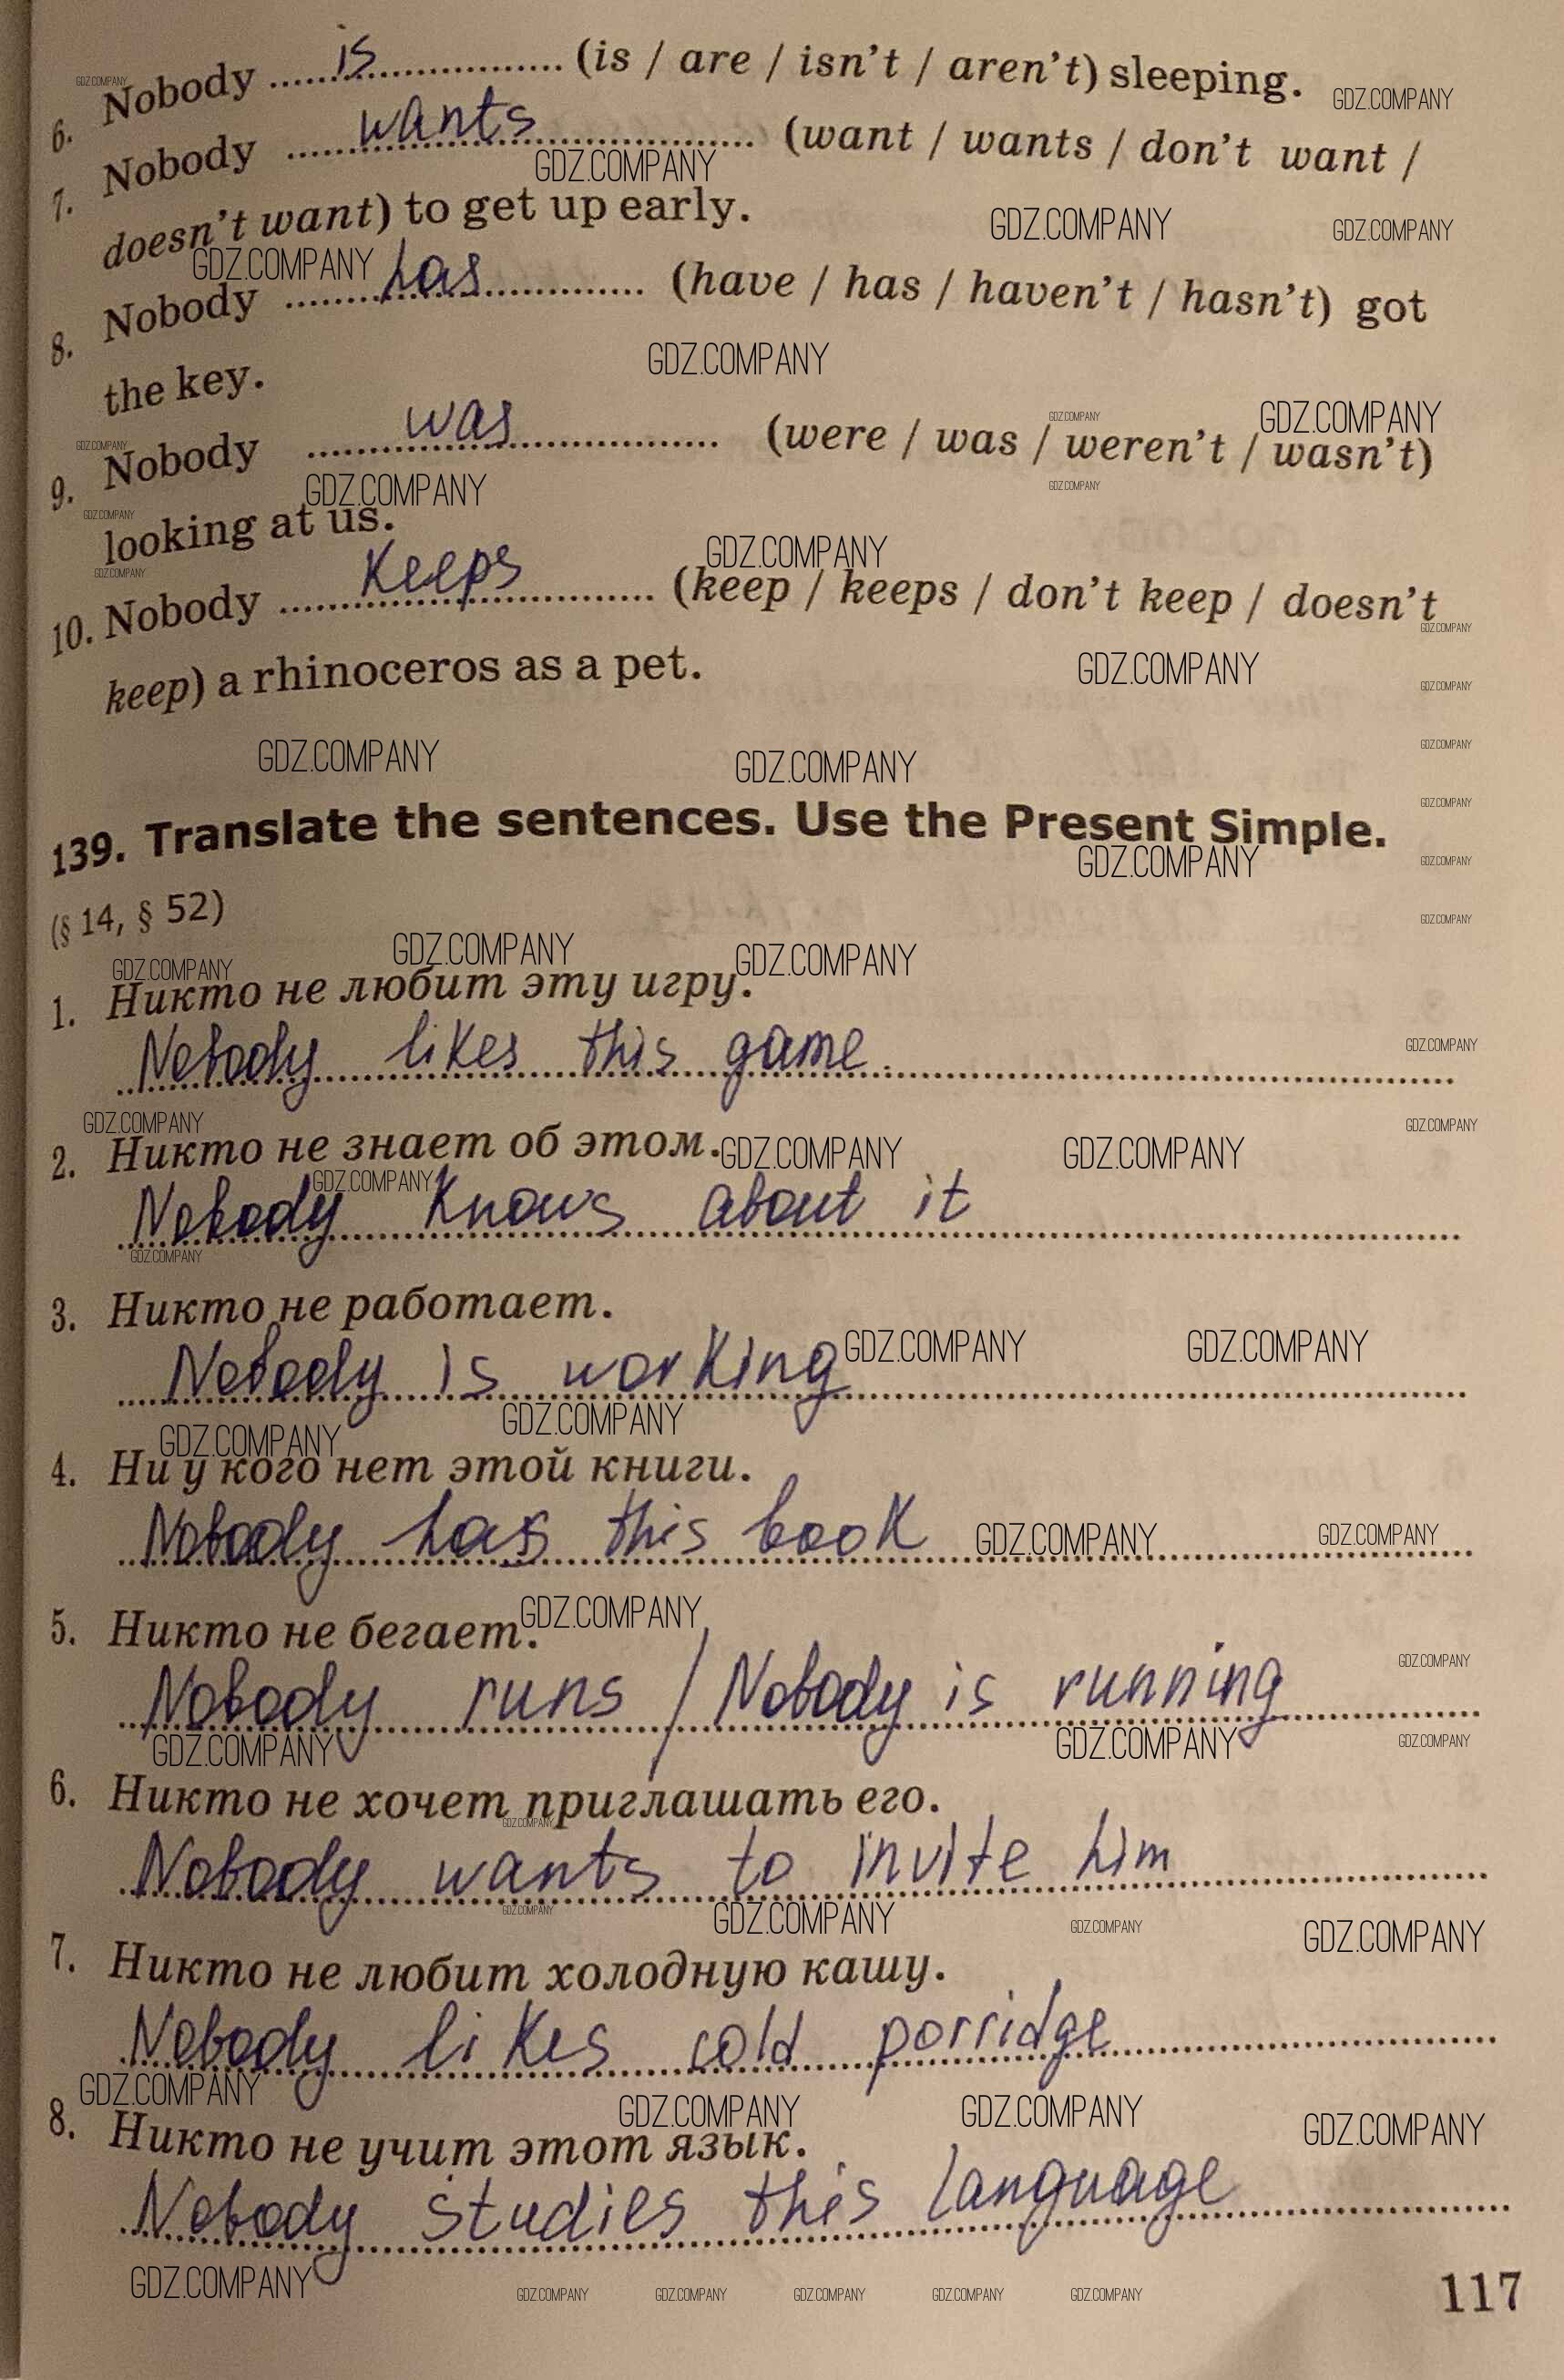 6. Nobody ......is.................. (is / are / isn't / aren't) sleeping.
7. Nobody ......wants.................. (want / wants / don't want /
doesn't want) to get up early.
8. Nobody ........has.............. (have / has / haven't / hasn't) got
the key.
9. Nobody ........was.................. (were / was / weren't / wasn't)
looking at us.
10. Nobody ......keeps.............. (keep / keeps / don't keep / doesn't
keep) a rhinoceros as a pet.
139. Translate the sentences. Use the Present Simple.
(§ 14, § 52)
1. Никто не любит эту игру.
Nobody likes this game.
2. Никто не знает об этом.
Nobody knows about it
3. Никто не работает.
Nobody is working
4. Ни у кого нет этой книги.
Nobody has this book
5. Никто не бегает.
Nobody runs / Nobody is running
6. Никто не хочет приглашать его.
Nobody wants to invite him
7. Никто не любит холодную кашу.
Nobody likes cold porridge
8. Никто не учит этот язык.
Nobody studies this language
GDZ.COMPANY
117